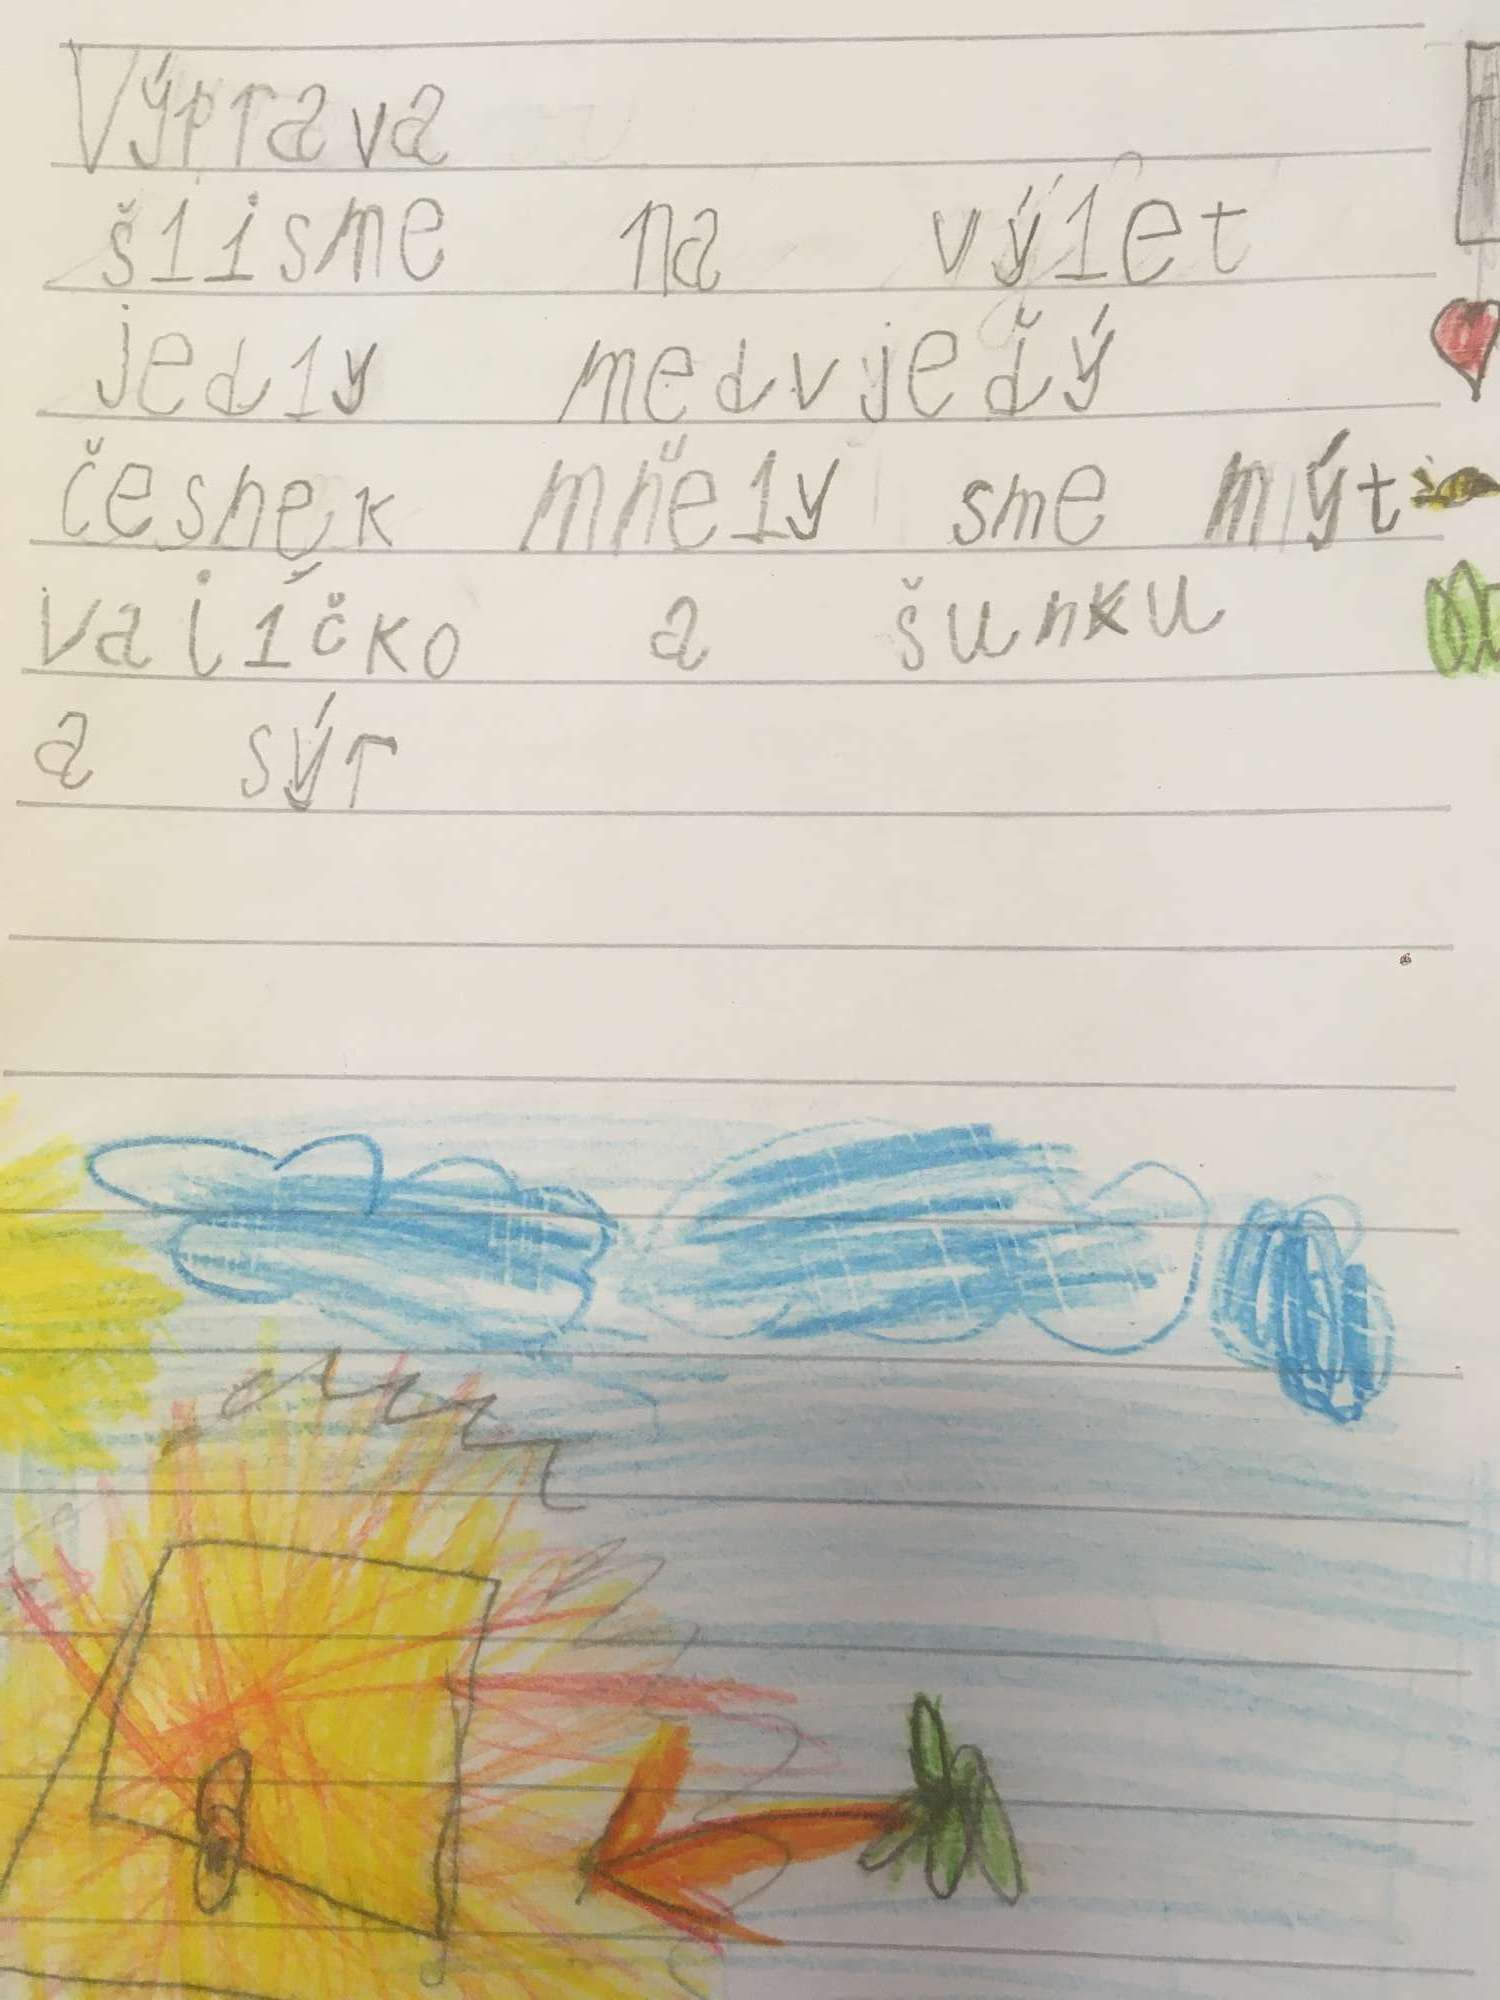 Výprava
šlisme na výlet
jedly medvjeďý
česnek mňely sme mýt
vaiíčko a šunku
a sýr